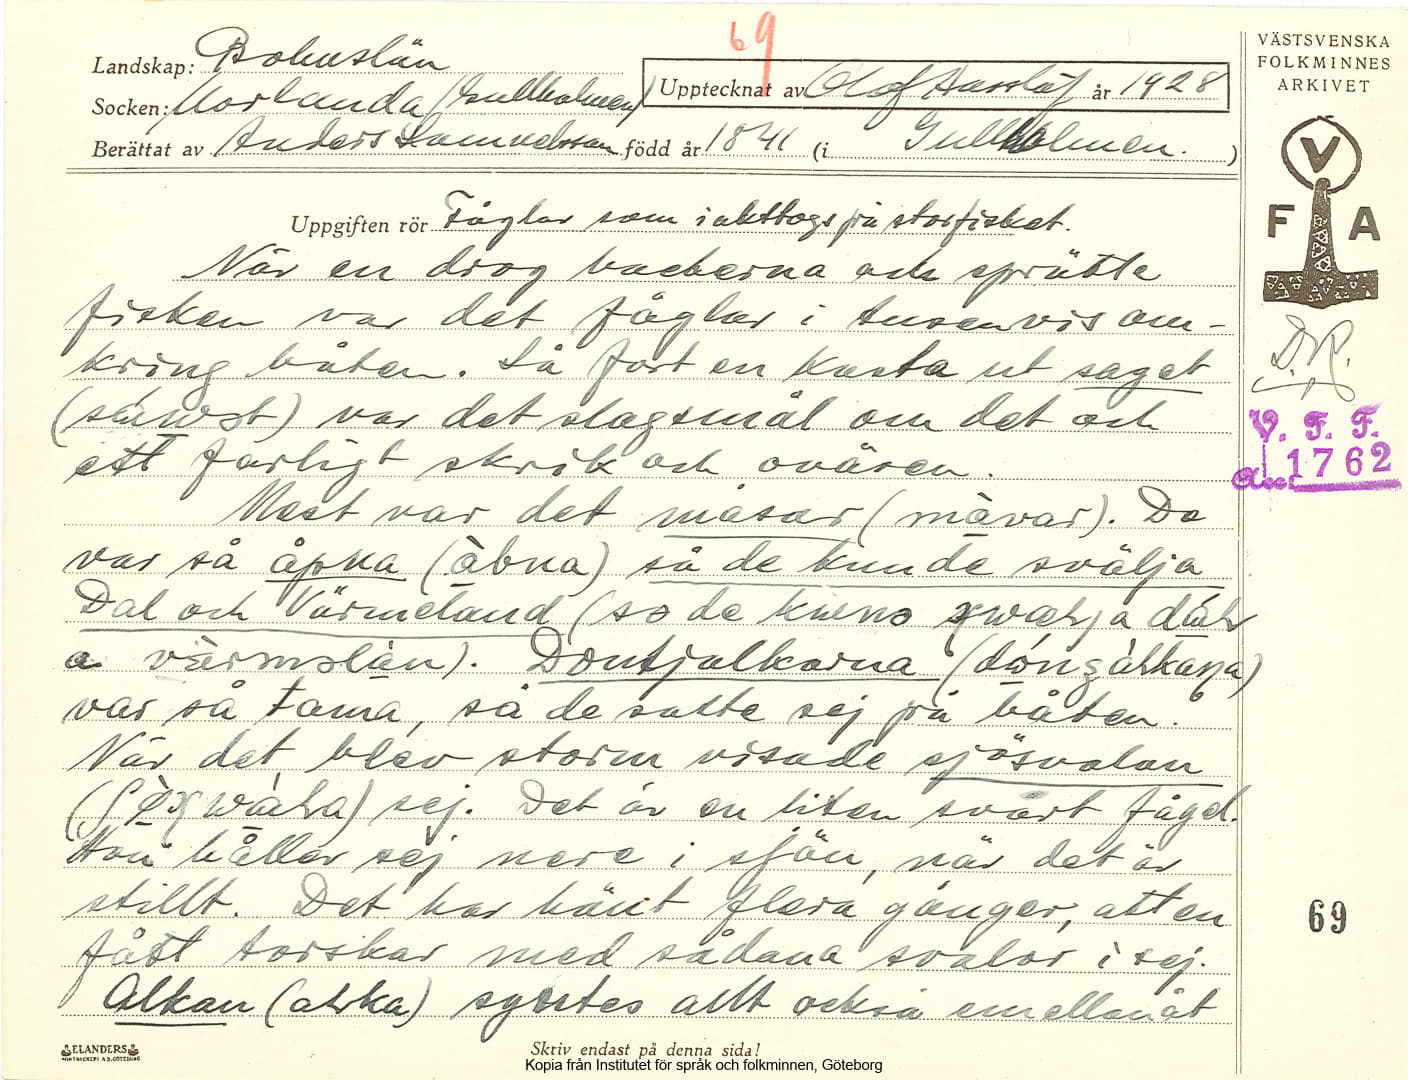 69
Landskap: Bohuslän
Socken: Morlanda (Gullholmen)
Upptecknat av Olof Hasslöf år 1928
Berättat av Anders Samuelsson född år 1841 (i Gullholmen. )
VÄSTSVENSKA
FOLKMINNES
ARKIVET
V
F A
Uppgiften rör Fåglar som iakttogs på storfisket.
När en drog backerna och sprätte
fisken var det fåglar i tusenvis om-
kring båten. Så fort en kasta ut saget
() var det slagsmål om det och
ett farligt skrik och oväsen.
Mest var det måsar (måvar). De
var så åpna (åbna) så de kunde svälja
Dal och Värmeland (so de
). Dontjalkorna
var så tama, så de satte sej på båten.
När det blev storm visade sjösvalan
sej. Det är en liten svart fågel.
Hon håller sej nere i sjön, när det är
stillt. Det har hänt flera gånger, att en
fått torskar med sådana svalor i sej.
Alkan syntes allt också emellanåt
V. F. F.
1762
69
ELANDERS
Skriv endast på denna sida!
Kopia från Institutet för språk och folkminnen, Göteborg